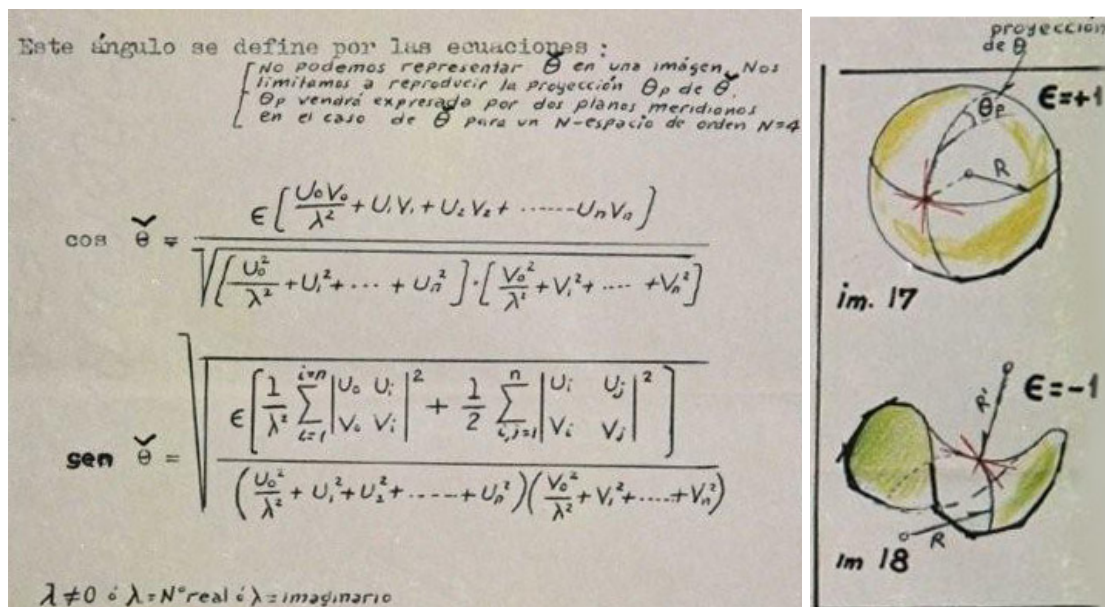 Este ángulo se define por las ecuaciones :
No podemos representar θ̌ en una imágen. Nos
limitamos a reproducir la proyección θp de θ̌.
θp vendrá expresada por dos planos meridianos
en el caso de θ̌ para un N-espacio de orden N=4
cos θ̌ = ϵ[U₀V₀/λ² + U₁V₁ + U₂V₂ + ······ UₙVₙ] / √([U₀²/λ² + U₁² + ···· + Uₙ²]·[V₀²/λ² + V₁² + ···· + Vₙ²])
sen θ̌ = √(ϵ[1/λ² ∑_{i=1}^{i=n} |U₀ Uᵢ; V₀ Vᵢ|² + 1/2 ∑_{i,j=1}^{n} |Uᵢ Uⱼ; Vᵢ Vⱼ|²] / (U₀²/λ² + U₁² + U₂² + ····· + Uₙ²)(V₀²/λ² + V₁² + ···· + Vₙ²))
λ ≠ 0 ó λ = Nº real ó λ = imaginario
proyección
de θ̌
ϵ=+1
θp
R
im. 17
ϵ=-1
R'
R
im 18